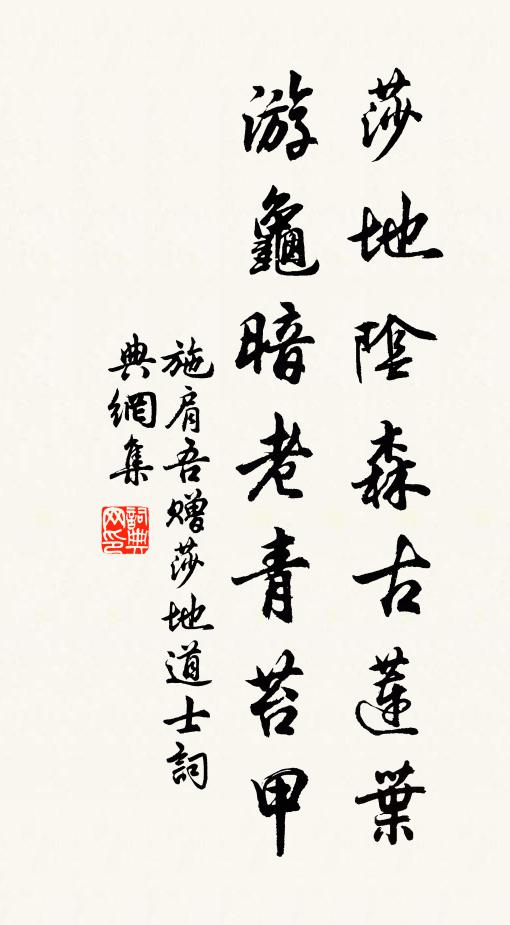 莎地陰森古蓮葉
游龜暗老青苔甲
施肩吾贈莎地道士詞
典網集
詞典
网印